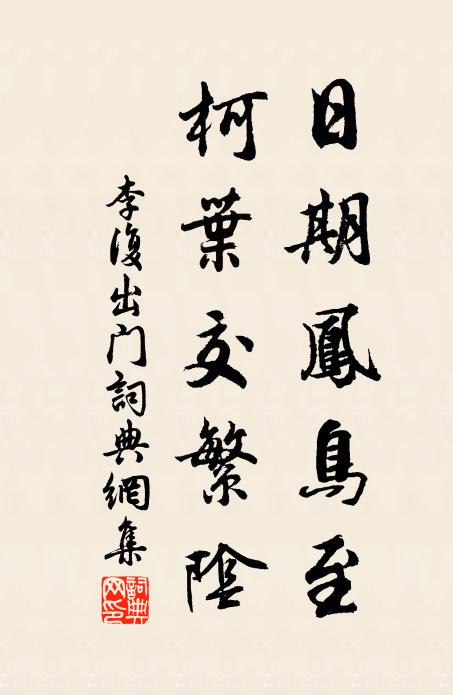 日期鳳鳥至
柯葉交繁陰
李復出門詞典網集
詞典網印